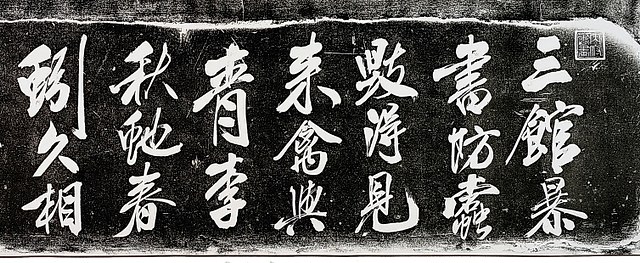 三館暴
書防蠹
毀得見
来禽與
青李
秋虵春
蚓久相